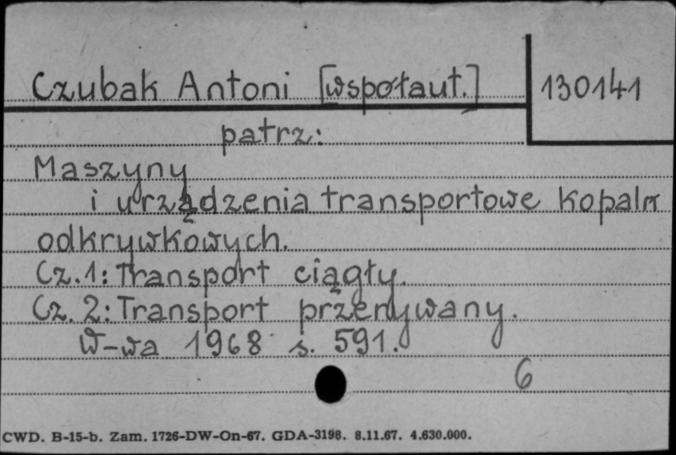 Czubak Antoni [współaut.] 130141
patrz:
Maszyny
i urządzenia transportowe kopalń
odkrywkowych.
Cz.1: Transport ciągły.
Cz. 2: Transport przerywany.
W-wa 1968 s. 591.
6
CWD. B-15-b. Zam. 1726-DW-On-67. GDA-3198. 8.11.67. 4.630.000.